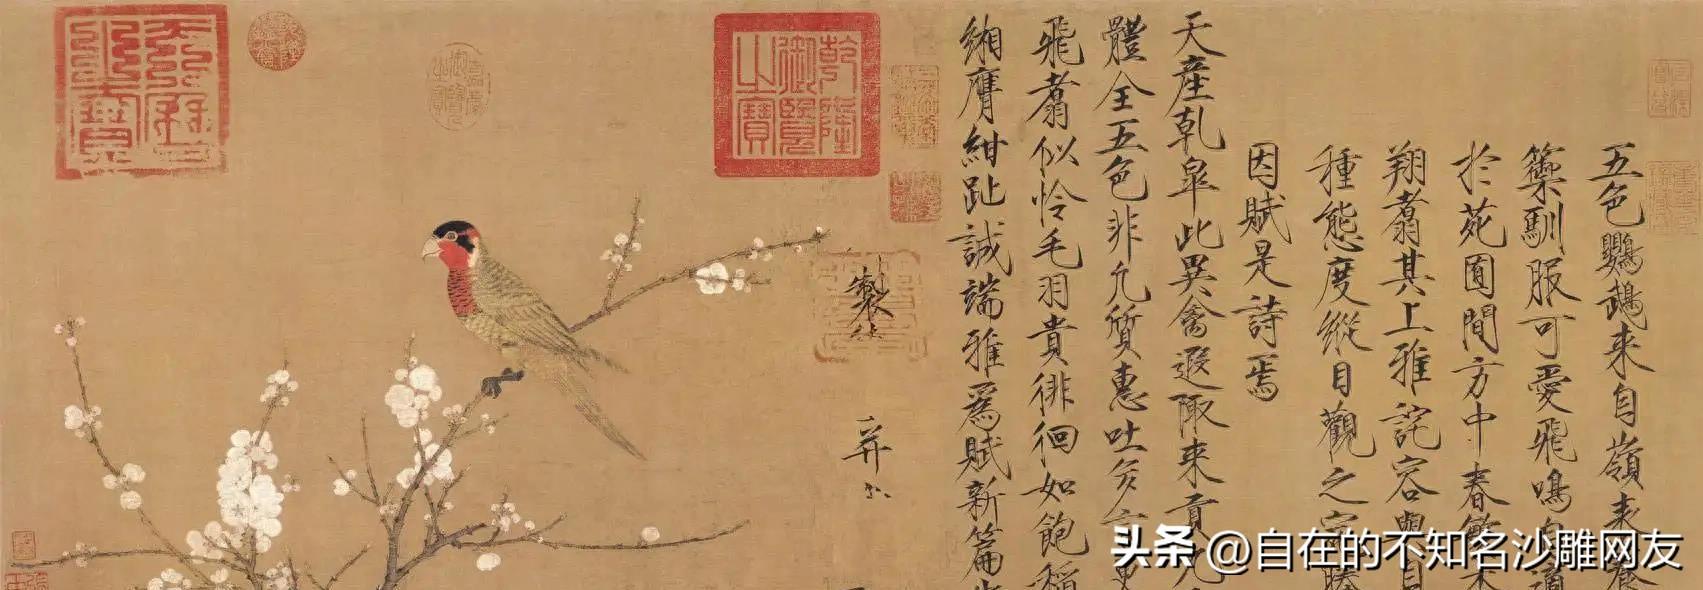 五色鸚鵡来自嶺表養
籞馴服可愛飛鳴自適
於苑囿間方中春繁
翔翥其上雅詫容與自
種態度縱目觀之宛勝
因賦是詩焉
天産乾皋此異禽遐陬来貢九
體全五色非凡質惠吐多言更
飛翥似怜毛羽貴徘徊如飽稻
緗膺紺趾誠端雅爲賦新篇步
製
并
乾隆御覽之寶
天曆之寶
头条 @自在的不知名沙雕网友